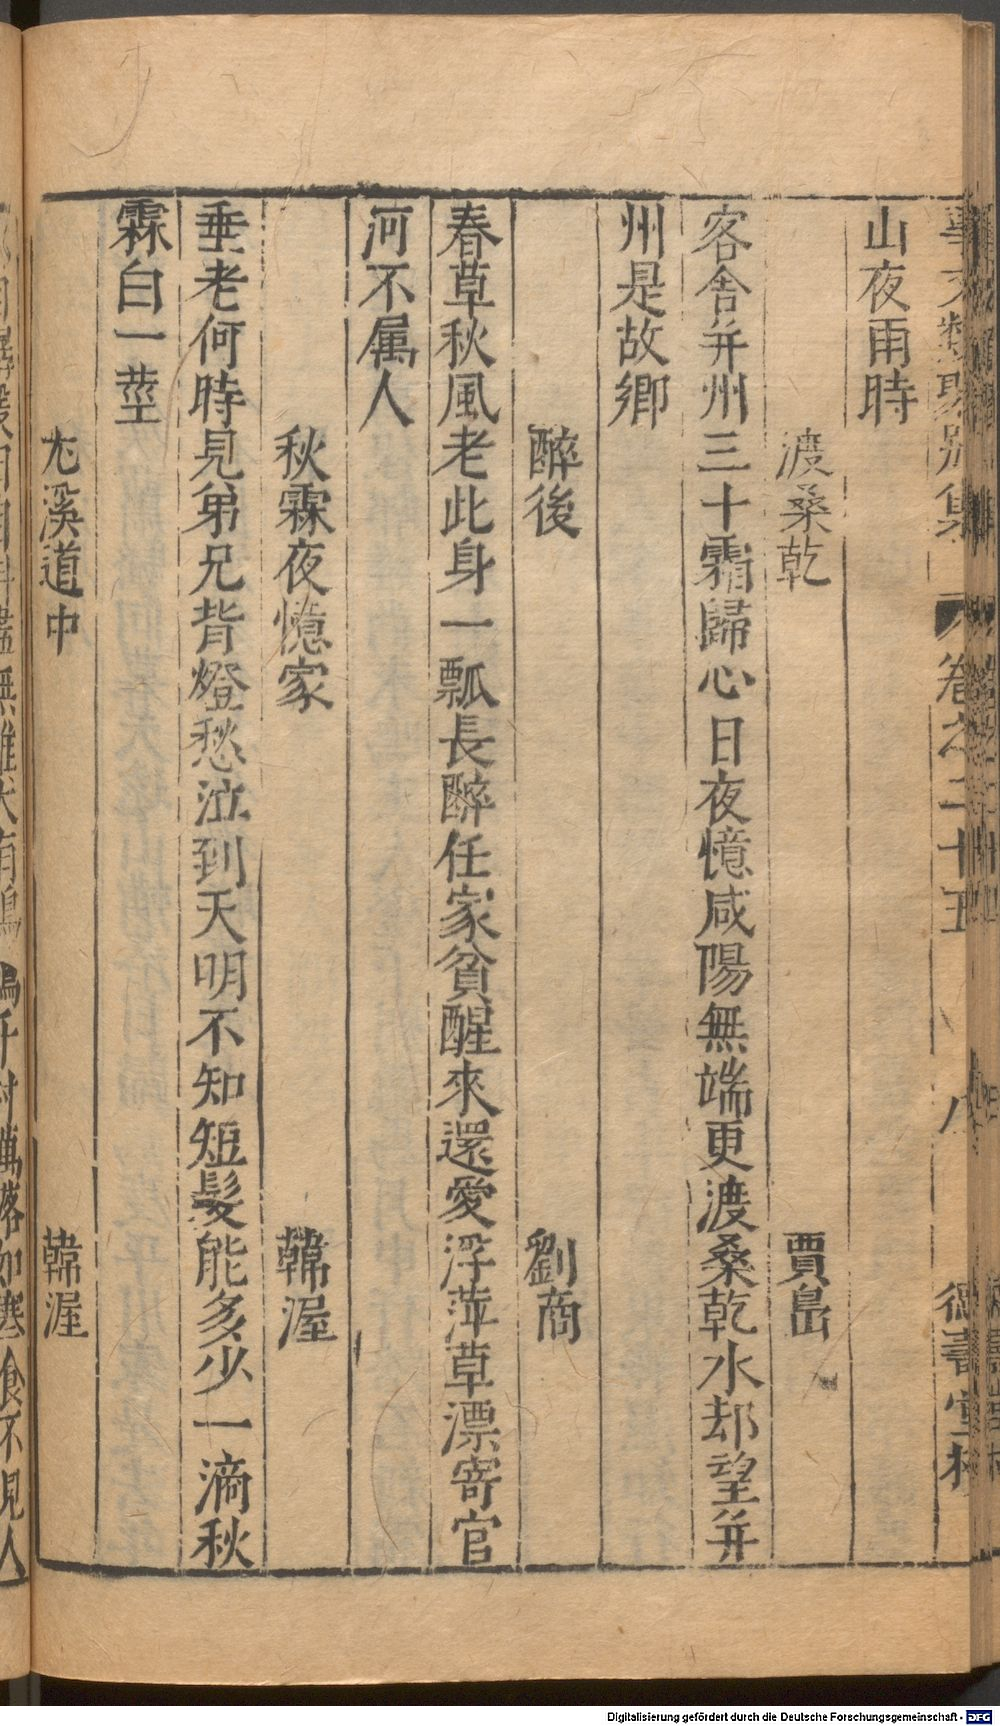 事文類聚別集 卷之二十五 八 德壽堂梓
山夜雨時
渡桑乾 賈島
客舍并州三十霜歸心日夜憶咸陽無端更渡桑乾水却望并
州是故鄉
醉後 劉商
春草秋風老此身一瓢長醉任家貧醒來還愛浮萍草漂寄官
河不属人
秋霖夜憶家 韓渥
垂老何時見弟兄背燈愁泣到天明不知短髮能多少一滴秋
霖白一莖
尤溪道中 韓渥
無雞犬有鳴鴉千村萬落如寒食不見人
Digitalisierung gefördert durch die Deutsche Forschungsgemeinschaft - DFG